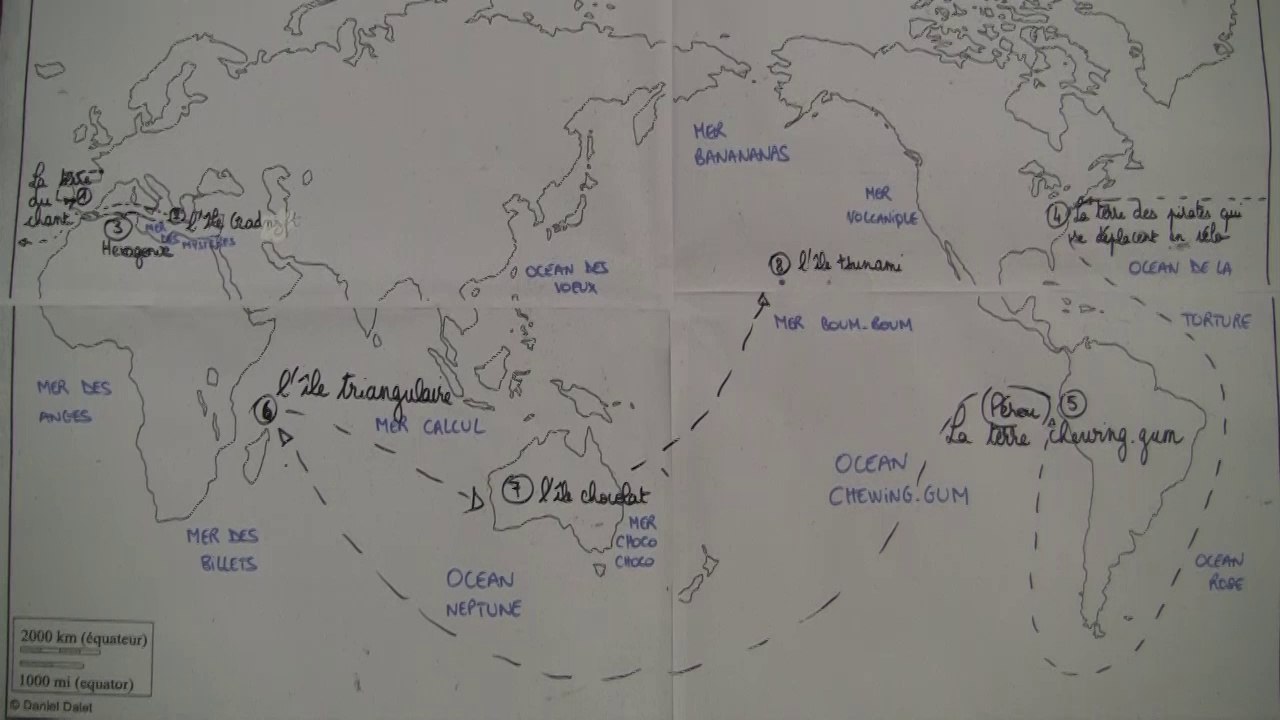 MER
BANANANAS
La terre
du
chant
①
② l'île Gradnoft
MER
DES
MYSTÈRES
③
Hexagonie
MER
VOLCANIQUE
④ La terre des pirates qui
se déplacent en vélo
OCEAN DES
VOEUX
⑧ l'île tsunami
OCEAN DE LA
TORTURE
MER BOUM-BOUM
MER DES
ANGES
⑥ l'île triangulaire
MER CALCUL
(Pérou) ⑤
La terre chewing-gum
OCEAN
CHEWING-GUM
⑦ l'île chocolat
MER
CHOCO
CHOCO
MER DES
BILLETS
OCEAN
NEPTUNE
OCEAN
ROSE
2000 km (équateur)
1000 mi (equator)
© Daniel Dalet